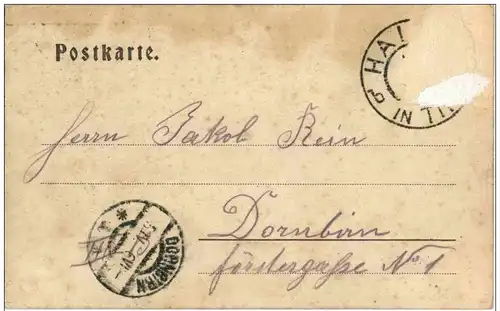 Postkarte.
HAL
IN TIR
Herrn Jakob Rein
Dornbirn
Förstergaße No 1
DORNBIRN